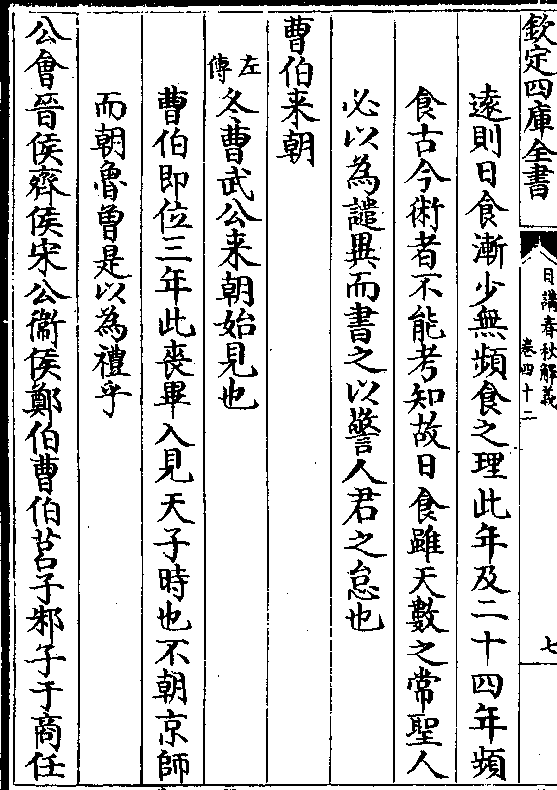 欽定四庫全書
日講春秋解義
卷四十二
七
遠則日食漸少無頻食之理此年及二十四年頻
食古今術者不能考知故日食雖天數之常聖人
必以為譴異而書之以警人君之怠也
曹伯来朝
左傳冬曹武公来朝始見也
曹伯即位三年此喪畢入見天子時也不朝京師
而朝魯曽是以為禮乎
公會晉侯齊侯宋公衞侯鄭伯曹伯莒子邾子于商任